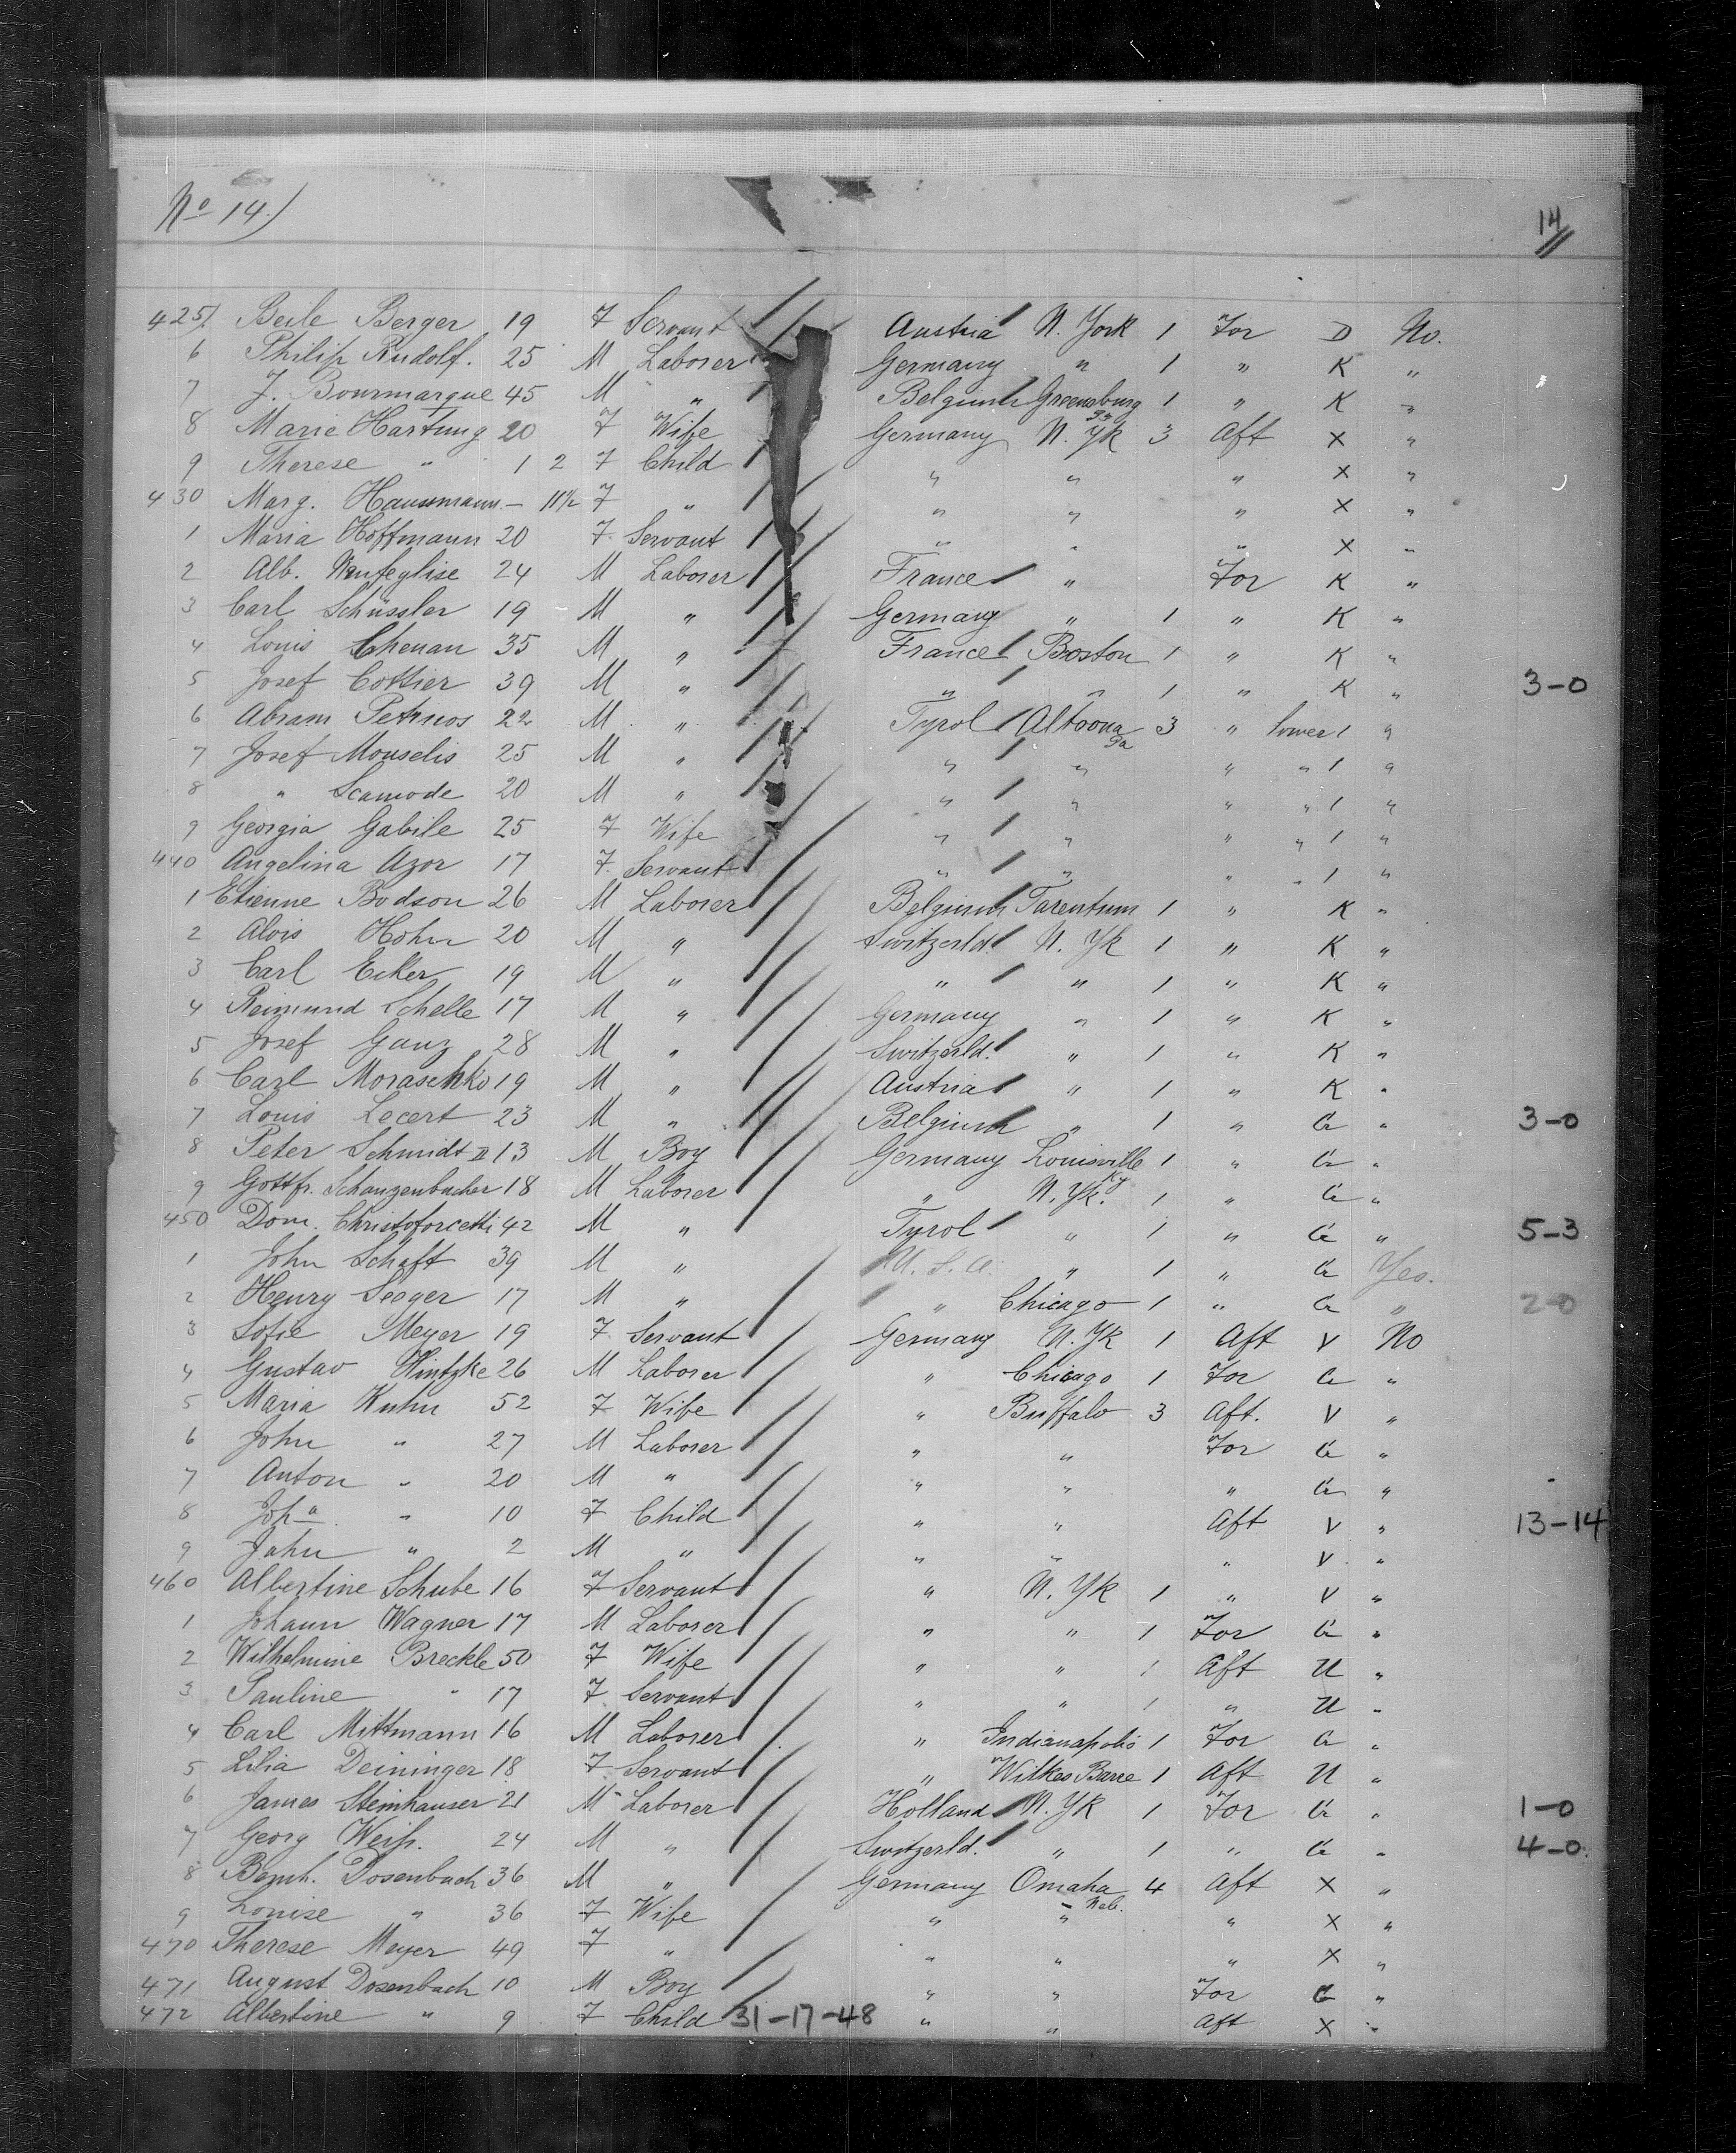 No 14.) 14
425/. Beile Berger 19 F Servant Austria N. York 1 For D No.
6 Philip Rudolf. 25 M Laborer Germany " 1 " K "
7 J. Bourmarque 45 M " Belgium Greensburg Pa 1 " K "
8 Marie Hartung 20 F Wife Germany N. Yk 3 Aft X "
9 Therese " 1 2 F Child " " " X "
430 Marg. Haussmann - 11½ F " " " " X "
1 Maria Hoffmann 20 F. Servant " " " X "
2 Alb. 24 M Laborer France " For K "
3 Carl Schüssler 19 M " Germany " 1 " K "
4 Louis Chenan 35 M " France Boston 1 " K "
5 Josef Cottier 39 M " " " 1 " K " 3-0
6 Abram Petrnos 22 M. " Tyrol Altoona Pa 3 " lower 1 "
7 Josef Mouselis 25 M " " " " " 1 "
8 " Scamode 20 M " " " " " 1 "
9 Georgia Gabile 25 F Wife " " " " 1 "
440 Angelina Azor 17 F. Servant " " " " 1 "
1 Etienne Bodson 26 M Laborer Belgium Tarentum 1 " K "
2 Alois Hohn 20 M " Switzerld. N. Yk 1 " K "
3 Carl Ecker 19 M " " " 1 " K "
4 Reimund Schelle 17 M " Germany " 1 " K "
5 Josef Ganz 28 M " Switzerld. " 1 " K "
6 Carl Moraschko 19 M " Austria " 1 " K "
7 Louis Lecert 23 M " Belgium " 1 " G " 3-0
8 Peter Schmidt II 13 M Boy Germany Louisville Ky 1 " G "
9 Gottfr. Schanzenbacher 18 M Laborer " N. Yk. 1 " G "
450 Dom. Christoforcetti 42 M " Tyrol " 1 " G " 5-3
1 John Schaft 39 M " U. S. A. " 1 " G Yes.
2 Henry Seager 17 M " " Chicago 1 " G " 2-0
3 Sofie Meyer 19 F. Servant Germany N. Yk 1 Aft V No
4 Gustav Hintzke 26 M Laborer " Chicago 1 For G "
5 Maria Kuhn 52 F Wife " Buffalo 3 Aft. V "
6 John " 27 M Laborer " " For G "
7 Anton " 20 M " " " " G "
8 Joha " 10 F Child " " Aft V " 13-14
9 John " 2 M " " " " V "
460 Albertine Schube 16 F Servant " N. Yk 1 " V "
1 Johann Wagner 17 M Laborer " " 1 For G "
2 Wilhelmine Breckle 50 F Wife " " 1 Aft U "
3 Pauline " 17 F Servant " " 1 " U "
4 Carl Mittmann 16 M Laborer " Indianapolis 1 For G "
5 Lilia Deininger 18 F Servant " Wilkes Barre 1 Aft U "
6 James Steinhauser 21 M Laborer Holland N. Yk 1 For G " 1-0
7 Georg Weiß. 24 M " Switzerld. " 1 " G " 4-0.
8 Bernh. Dosenbach 36 M " Germany Omaha Neb. 4 Aft X "
9 Louise " 36 F Wife " " " X "
470 Therese Meyer 49 F " " " " X "
471 August Dosenbach 10 M Boy " " For G "
472 Albertine " 9 F Child 31-17-48 " " Aft X "